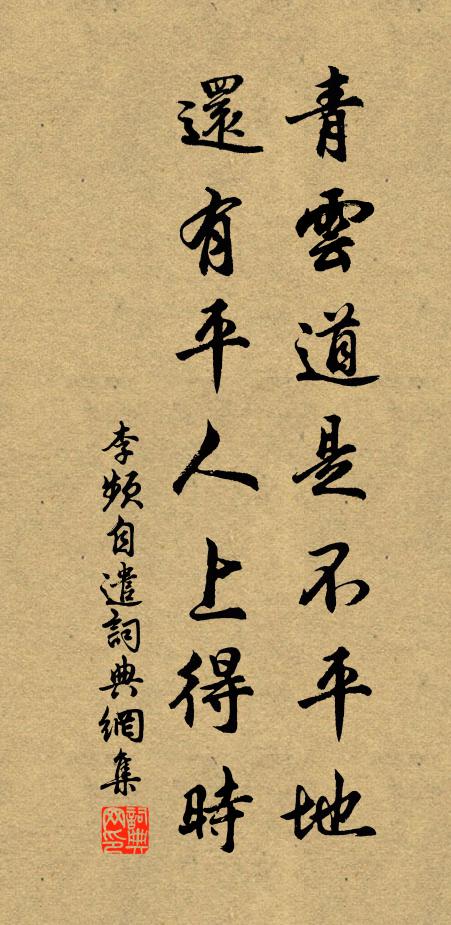 青雲道是不平地
還有平人上得時
李頻自遣詞典網集
詞典
网印